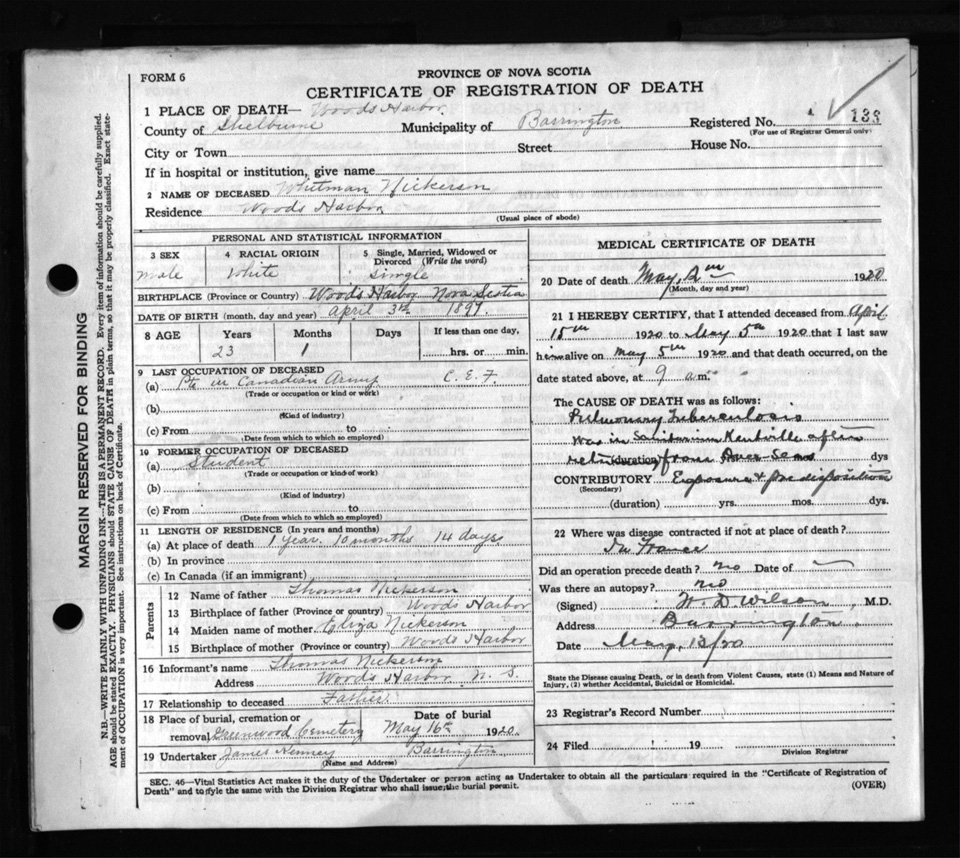 FORM 6
PROVINCE OF NOVA SCOTIA
CERTIFICATE OF REGISTRATION OF DEATH
1 PLACE OF DEATH— Woods Harbor
County of Shelburne Municipality of Barrington Registered No. 133
(For use of Registrar General only)
City or Town Street House No.
If in hospital or institution, give name
2 NAME OF DECEASED Whitman Nickerson
Residence Woods Harbor
(Usual place of abode)
PERSONAL AND STATISTICAL INFORMATION
3 SEX 4 RACIAL ORIGIN 5 Single, Married, Widowed or Divorced (Write the word)
Male White Single
BIRTHPLACE (Province or Country) Woods Harbor Nova Scotia
DATE OF BIRTH (month, day and year) April 3rd 1897.
8 AGE Years Months Days If less than one day,
23 1 hrs. or min.
9 LAST OCCUPATION OF DECEASED
(a) Pte in Canadian Army C. E. F.
(Trade or occupation or kind or work)
(b)
(Kind of industry)
(c) From to
(Date from which to which so employed)
10 FORMER OCCUPATION OF DECEASED
(a) Student
(Trade or occupation or kind of work)
(b)
(Kind of industry)
(c) From to
(Date from which to which so employed)
11 LENGTH OF RESIDENCE (In years and months)
(a) At place of death 1 year 10 months 14 days
(b) In province
(c) In Canada (if an immigrant)
Parents
12 Name of father Thomas Nickerson
13 Birthplace of father (Province or country) Woods Harbor
14 Maiden name of mother Eliza Nickerson
15 Birthplace of mother (Province or country) Woods Harbor
16 Informant's name Thomas Nickerson
Address Woods Harbor N. S.
17 Relationship to deceased Father
18 Place of burial, cremation or removal Greenwood Cemetery Date of burial May 16th 1920.
19 Undertaker James Kenney Barrington
(Name and Address)
MEDICAL CERTIFICATE OF DEATH
20 Date of death May, 1920
(Month, day and year)
21 I HEREBY CERTIFY, that I attended deceased from April
15th 1920 to May 5th 1920 that I last saw
him alive on May 5th 1920 and that death occurred, on the
date stated above, at 9 a.m.
The CAUSE OF DEATH was as follows:
Pulmonary Tuberculosis
Was in Sanitarium Kentville after
(duration) from Over-Seas dys
CONTRIBUTORY Exposure + predisposition
(Secondary)
(duration) yrs. mos. dys.
22 Where was disease contracted if not at place of death?
In France
Did an operation precede death? no Date of
Was there an autopsy? no
(Signed) W. D. Wilson, M.D.
Address Barrington
Date May, 13/20
State the Disease causing Death, or in death from Violent Causes, state (1) Means and Nature of Injury, (2) whether Accidental, Suicidal or Homicidal.
23 Registrar's Record Number
24 Filed 19
Division Registrar
SEC. 46—Vital Statistics Act makes it the duty of the Undertaker or person acting as Undertaker to obtain all the particulars required in the "Certificate of Registration of
Death" and to file the same with the Division Registrar who shall issue the burial permit. (OVER)
MARGIN RESERVED FOR BINDING
N.B.—WRITE PLAINLY WITH UNFADING INK—THIS IS A PERMANENT RECORD. Every item of information should be carefully supplied.
AGE should be stated EXACTLY. PHYSICIANS should STATE CAUSE OF DEATH in plain terms, so that it may be properly classified. Exact state-
ment of OCCUPATION is very important. See instructions on back of Certificate.